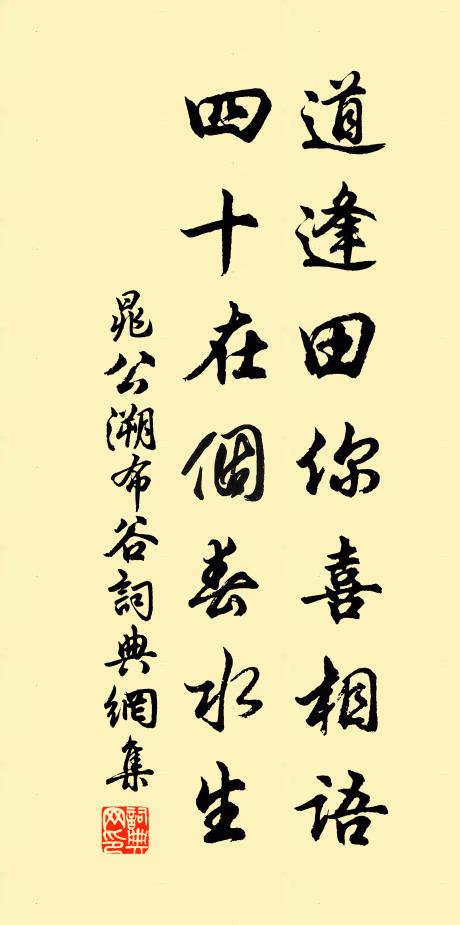 道逢田你喜相語
四十在個春水生
晁公溯布谷詞典網集
詞典網印